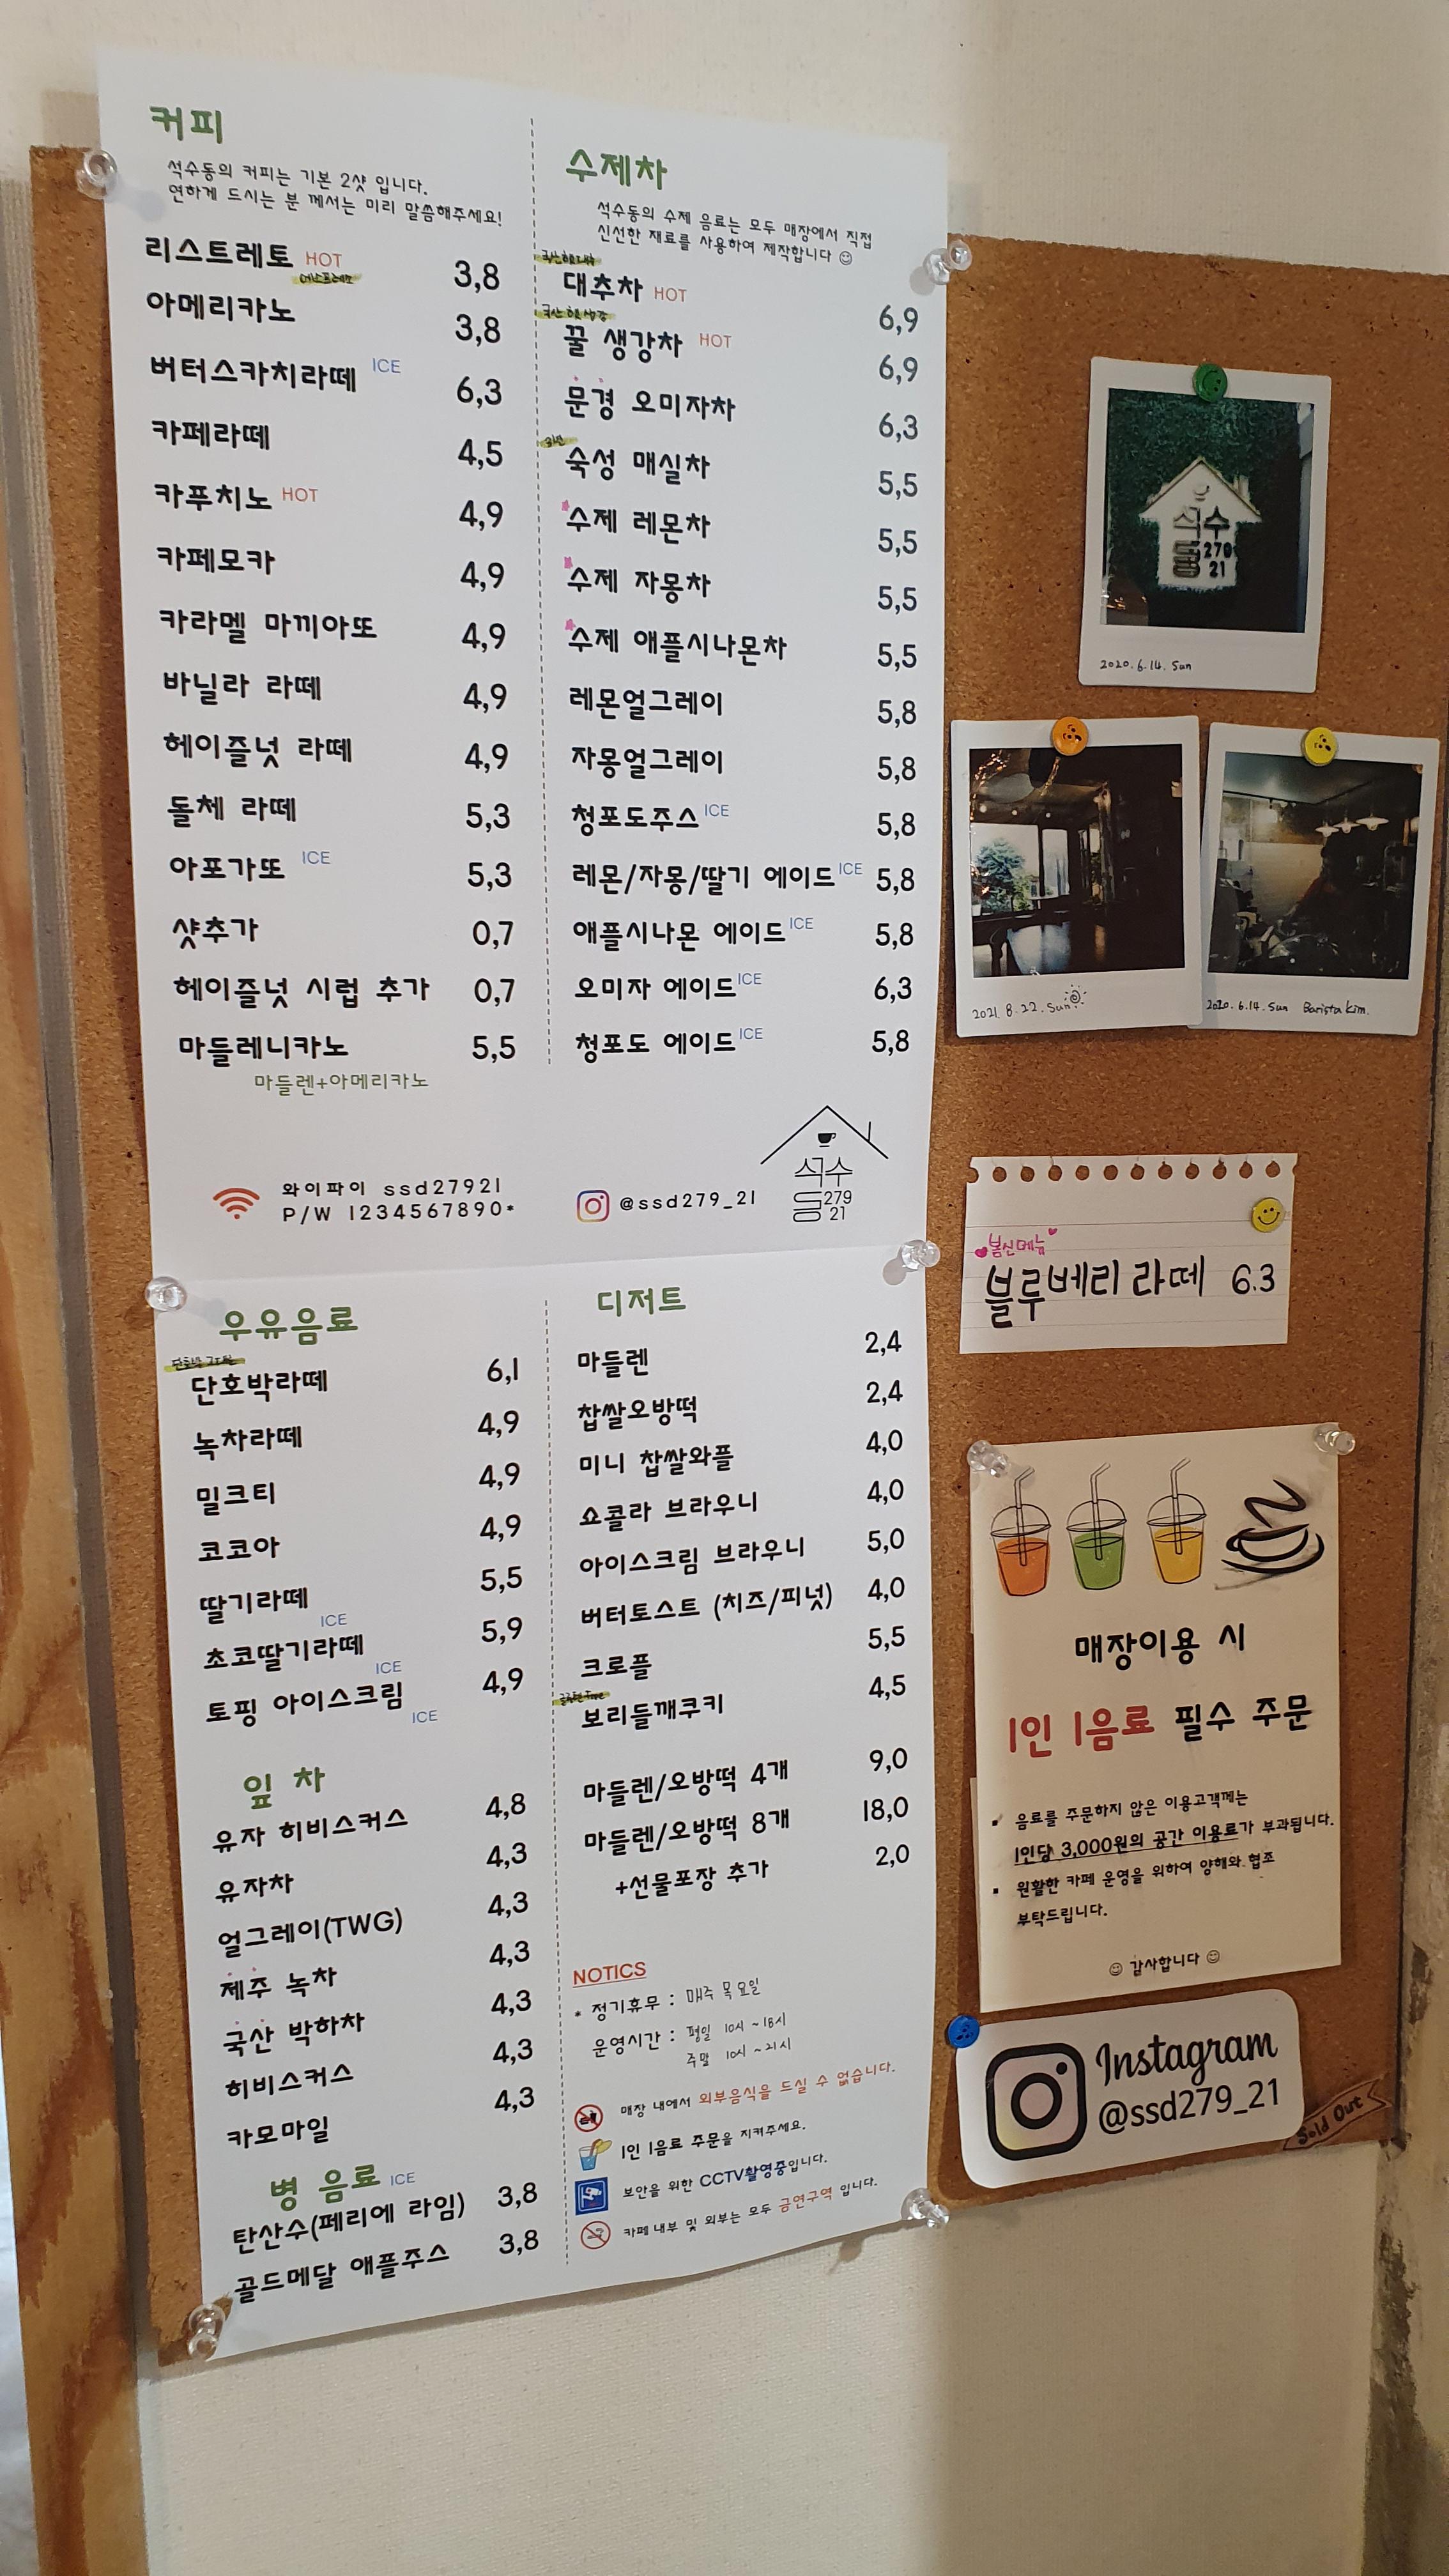 커피
석수동의 커피는 기본 2샷 입니다.
연하게 드시는 분 께서는 미리 말씀해주세요!
리스트레토 HOT 3,8
에스프레쏘
아메리카노 3,8
버터스카치라떼 ICE 6,3
카페라떼 4,5
카푸치노 HOT 4,9
카페모카 4,9
카라멜 마끼아또 4,9
바닐라 라떼 4,9
헤이즐넛 라떼 4,9
돌체 라떼 5,3
아포가또 ICE 5,3
샷추가 0,7
헤이즐넛 시럽 추가 0,7
마들레니카노 5,5
마들렌+아메리카노
수제차
석수동의 수제 음료는 모두 매장에서 직접
신선한 재료를 사용하여 제작합니다 ☺
대추차 HOT 6,9
국산 햇생강
꿀 생강차 HOT 6,9
문경 오미자차 6,3
숙성 매실차 5,5
수제 레몬차 5,5
수제 자몽차 5,5
수제 애플시나몬차 5,5
레몬얼그레이 5,8
자몽얼그레이 5,8
청포도주스 ICE 5,8
레몬/자몽/딸기 에이드 ICE 5,8
애플시나몬 에이드 ICE 5,8
오미자 에이드 ICE 6,3
청포도 에이드 ICE 5,8
와이파이 ssd27921
P/W 1234567890*
@ssd279_21
석수
동279
21
우유음료
단호박라떼 6,1
녹차라떼 4,9
밀크티 4,9
코코아 4,9
딸기라떼 ICE 5,5
초코딸기라떼 ICE 5,9
토핑 아이스크림 ICE 4,9
잎 차
유자 히비스커스 4,8
유자차 4,3
얼그레이(TWG) 4,3
제주 녹차 4,3
국산 박하차 4,3
히비스커스 4,3
카모마일 4,3
병 음료 ICE
탄산수(페리에 라임) 3,8
골드메달 애플주스 3,8
디저트
마들렌 2,4
찹쌀오방떡 2,4
미니 찹쌀와플 4,0
쇼콜라 브라우니 4,0
아이스크림 브라우니 5,0
버터토스트 (치즈/피넛) 4,0
크로플 5,5
보리들깨쿠키 4,5
마들렌/오방떡 4개 9,0
마들렌/오방떡 8개 18,0
+선물포장 추가 2,0
NOTICS
* 정기휴무 : 매주 목요일
운영시간 : 평일 10시 ~ 18시
주말 10시 ~ 21시
매장 내에서 외부음식을 드실 수 없습니다.
1인 1음료 주문을 지켜주세요.
보안을 위한 CCTV촬영중입니다.
카페 내부 및 외부는 모두 금연구역 입니다.
석수
동279
21
2020. 6. 14. Sun
2021. 8. 22. Sun
2020. 6. 14. Sun Barista Kim.
봄신메뉴
블루베리 라떼 6.3
매장이용 시
1인 1음료 필수 주문
▪ 음료를 주문하지 않은 이용고객께는
1인당 3,000원의 공간 이용료가 부과됩니다.
▪ 원활한 카페 운영을 위하여 양해와 협조
부탁드립니다.
☺ 감사합니다 ☺
Instagram
@ssd279_21
Sold Out